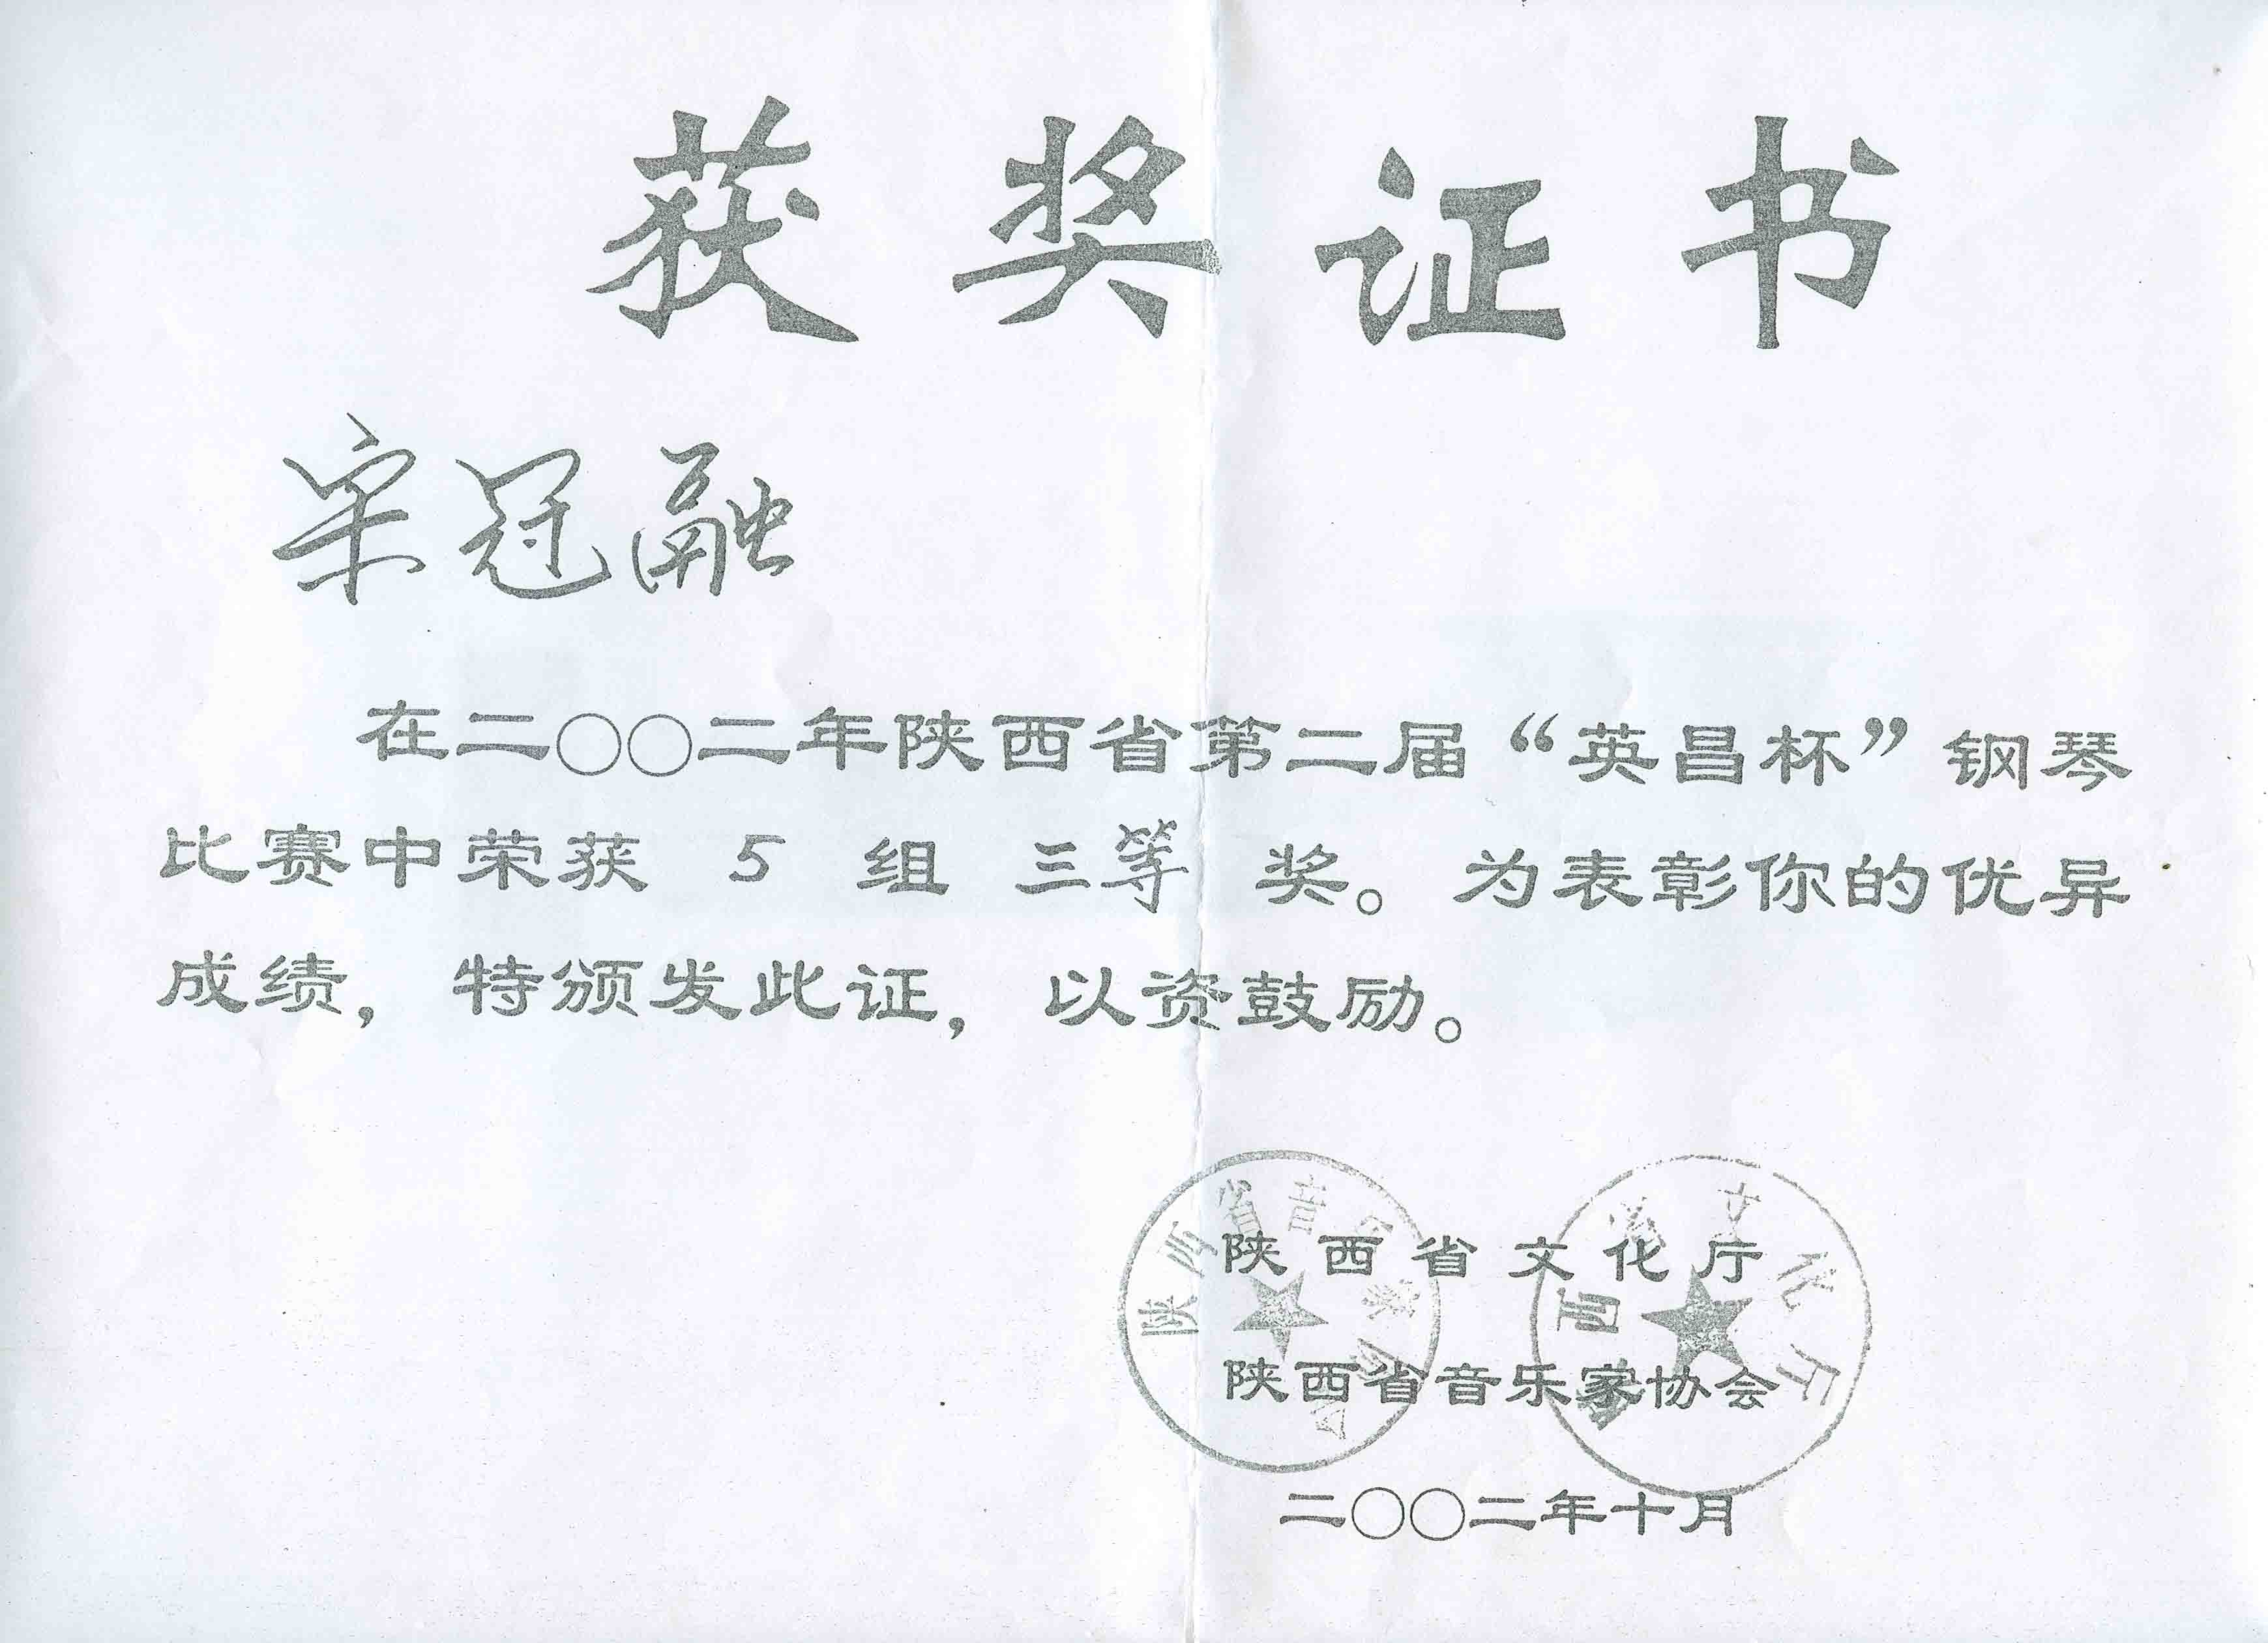 获奖证书
宋冠融
在二〇〇二年陕西省第二届“英昌杯”钢琴
比赛中荣获 5 组 三等 奖。为表彰你的优异
成绩，特颁发此证，以资鼓励。
陕西省音乐家协会
陕西省文化厅
陕西省文化厅
陕西省音乐家协会
二〇〇二年十月